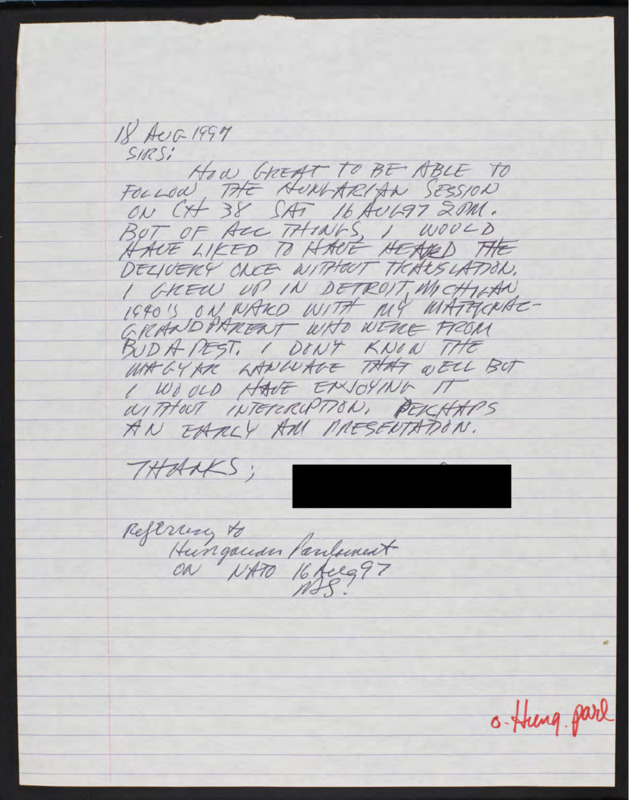 18 AUG 1997
SIRS:
HOW GREAT TO BE ABLE TO
FOLLOW THE HUNGARIAN SESSION
ON CH 38 SAT 16 AUG97 2PM.
BUT OF ALL THINGS, I WOULD
HAVE LIKED TO HAVE HEARD THE
DELIVERY ONCE WITHOUT TRANSLATION.
I GREW UP IN DETROIT, MICHIGAN
1940'S ON WARD WITH MY MATERNAL-
GRANDPARENT WHO WERE FROM
BUDAPEST. I DON'T KNOW THE
MAGYAR LANGUAGE THAT WELL BUT
I WOULD HAVE ENJOYING IT
WITHOUT INTERRUPTION. PERHAPS
AN EARLY AM PRESENTATION.
THANKS;
Referring to
Hungarian Parliament
ON NATO 16 Aug 97
o-Hung. parl